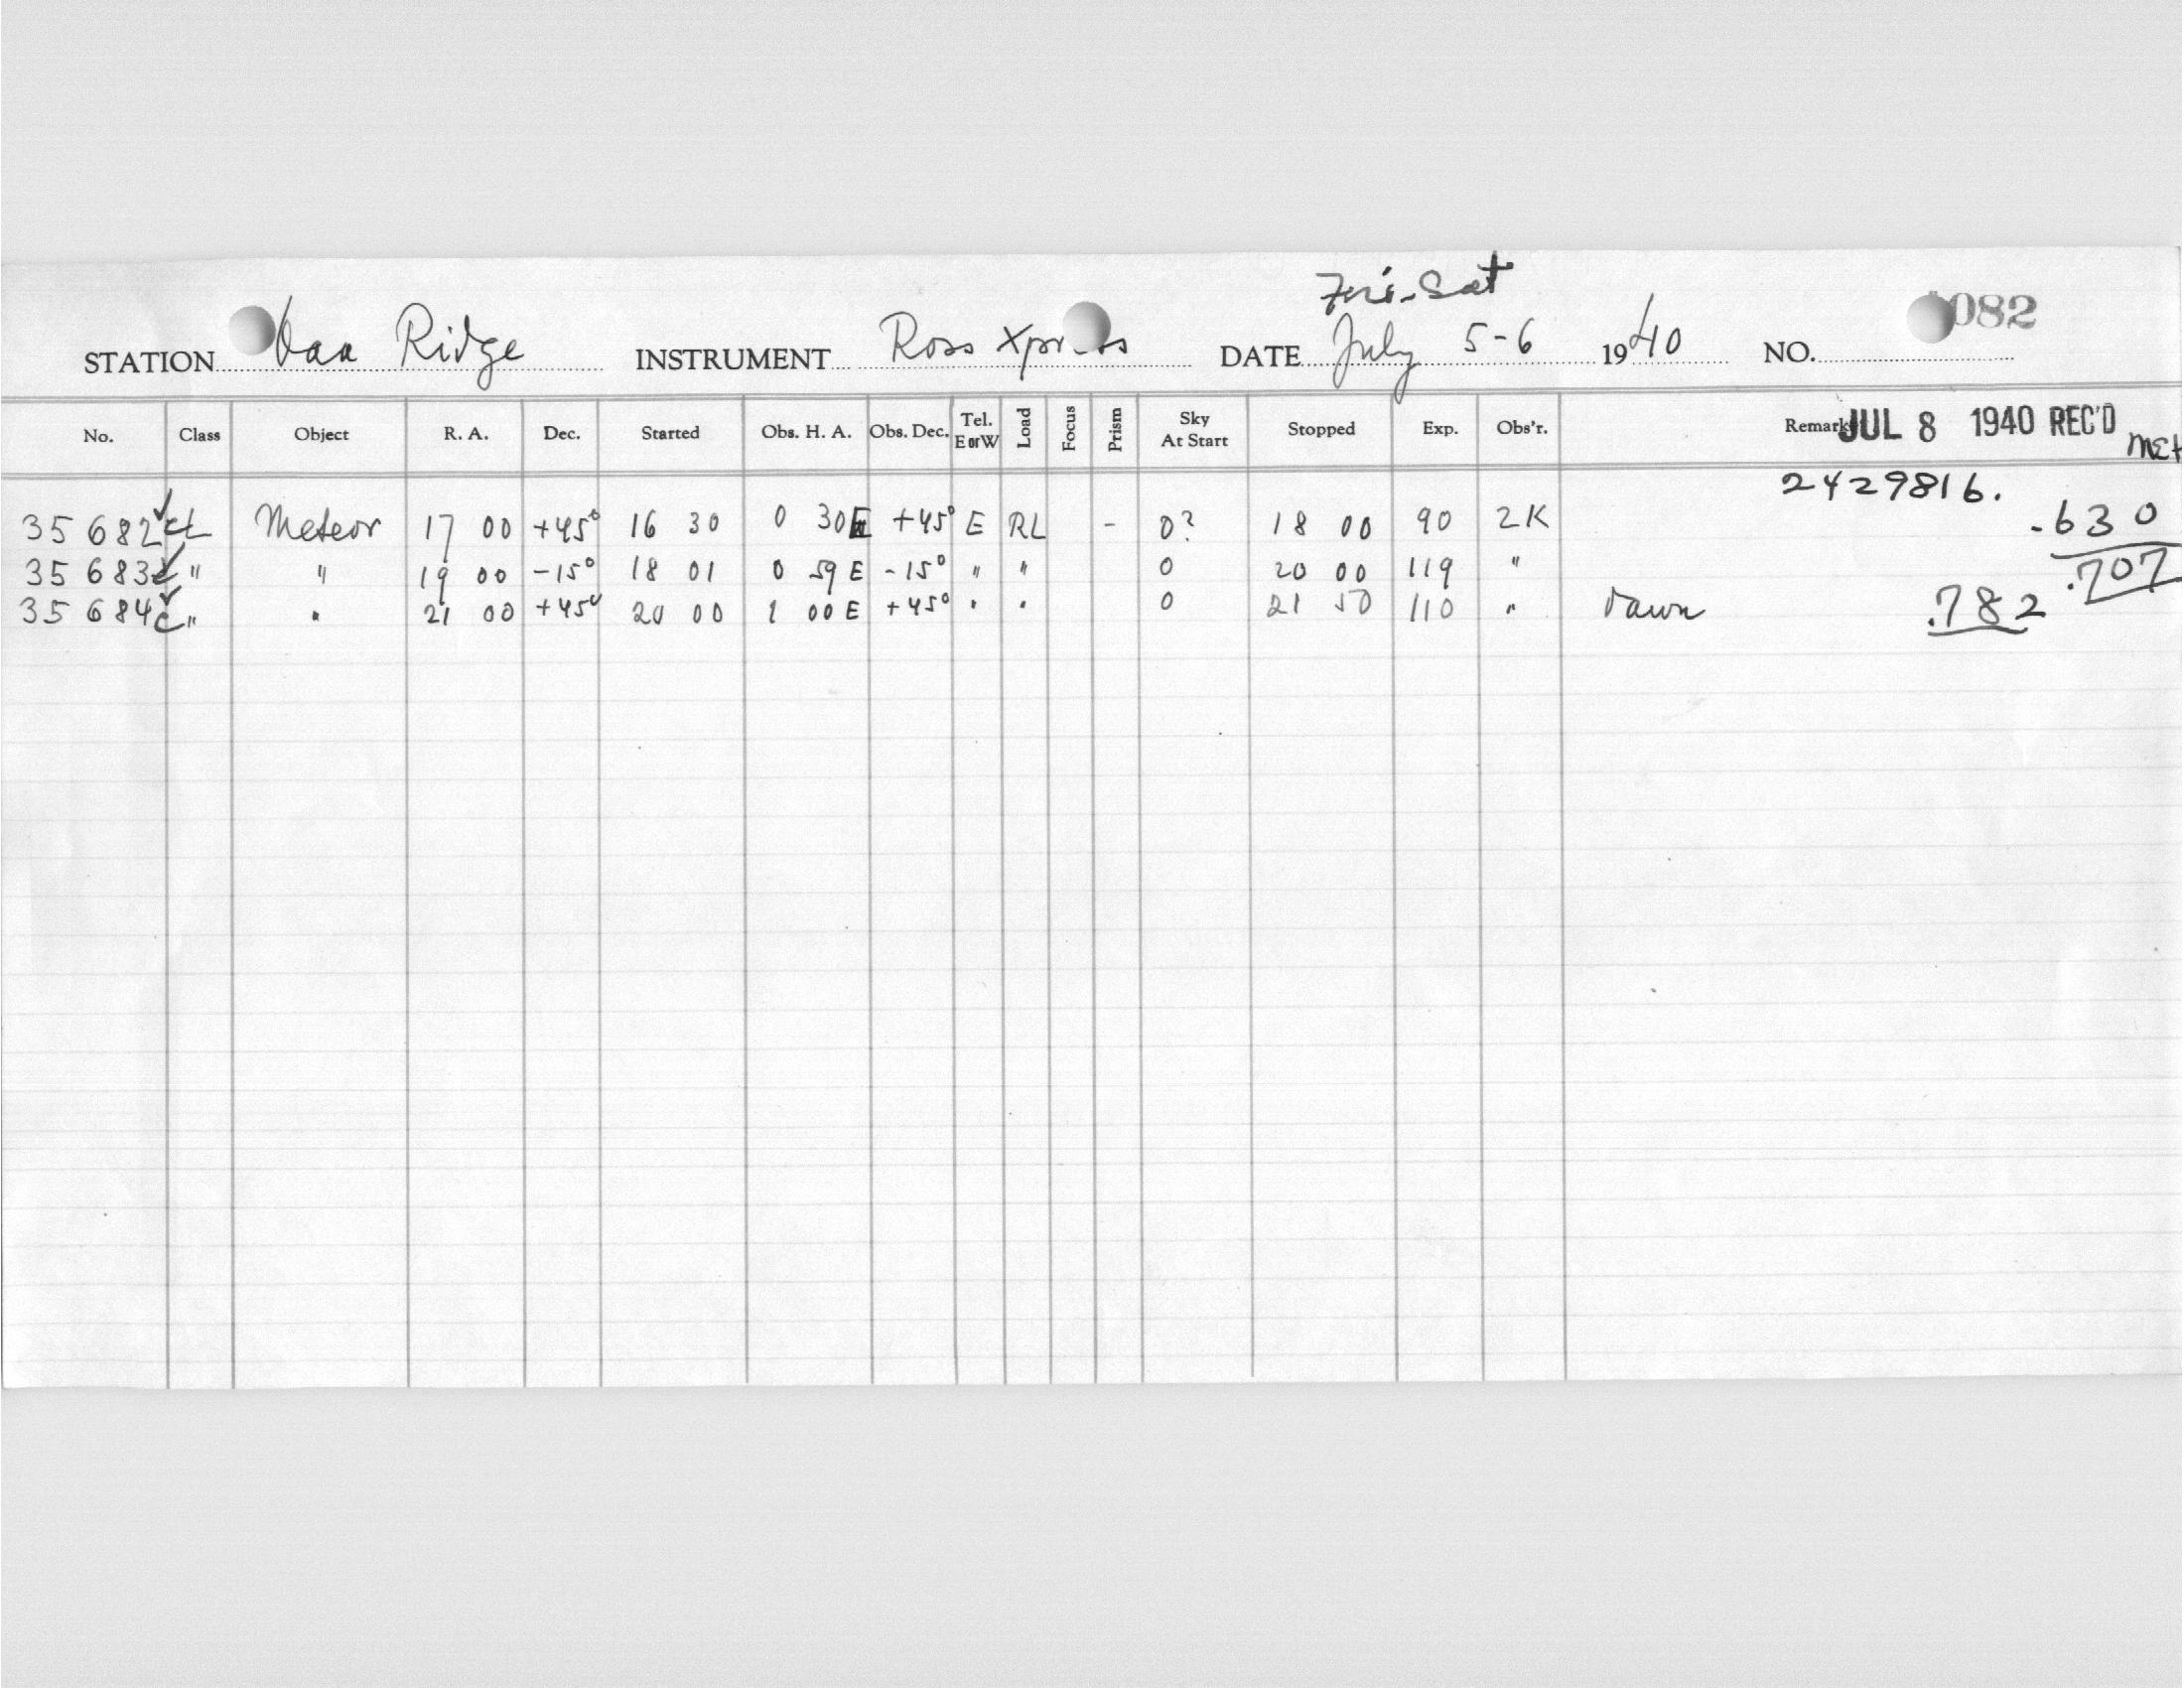 Fri.-Sat
STATION Oak Ridge INSTRUMENT Ross Xpress DATE July 5-6 1940 NO. 082
No. Class Object R. A. Dec. Started Obs. H. A. Obs. Dec. Tel. E or W Load Focus Prism Sky At Start Stopped Exp. Obs'r. Remarks JUL 8 1940 REC'D
2429816.
35 682 Meteor 17 00 +45° 16 30 0 30 E +45° E RL - 0? 18 00 90 2K .630
35 683 " " 19 00 -15° 18 01 0 59 E -15° " " 0 20 00 119 " .707
35 684 " " 21 00 +45° 20 00 1 00 E +45° " " 0 21 50 110 " Dawn .782